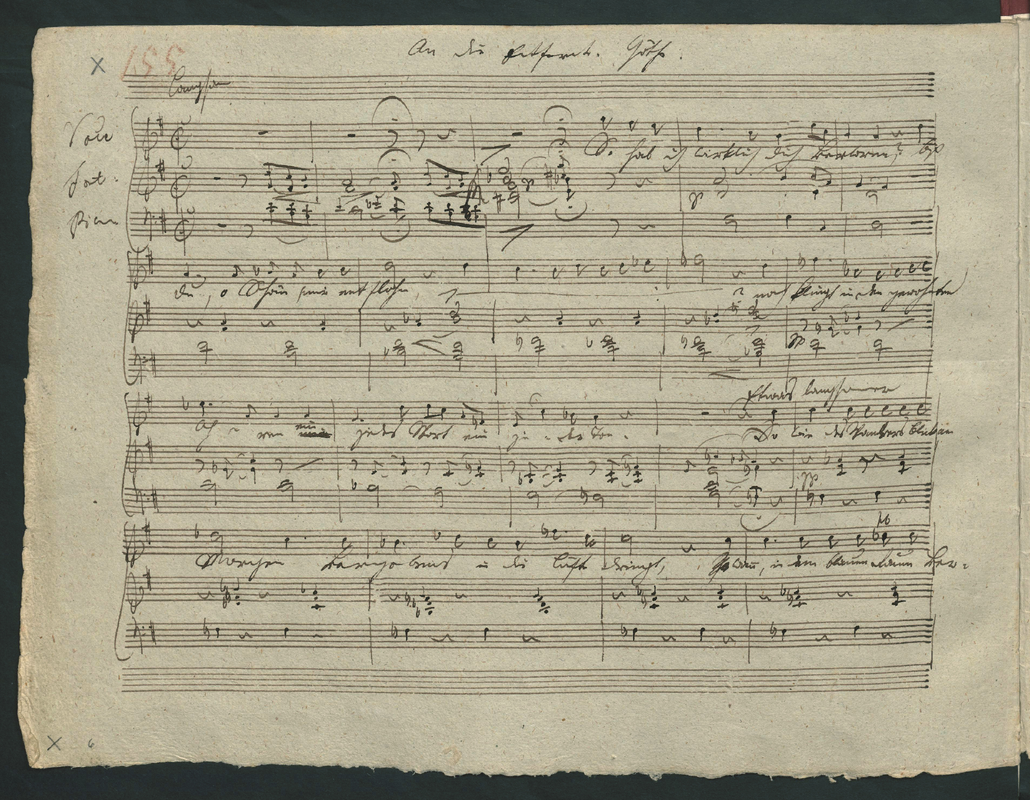 An die Entfernte. Göthe.
155
Langsam
So hab ich wirklich dich verloren? bist
du, o Schöne mir entflohn
? noch klingt in den gewohnten
Etwas langsamer
Ohren ein jedes Wort ein jeder Ton.
So wie des Wandrers Blick am
Morgen vergebens in die Lüfte dringt,
wenn, in dem blauen Raum ver-
6